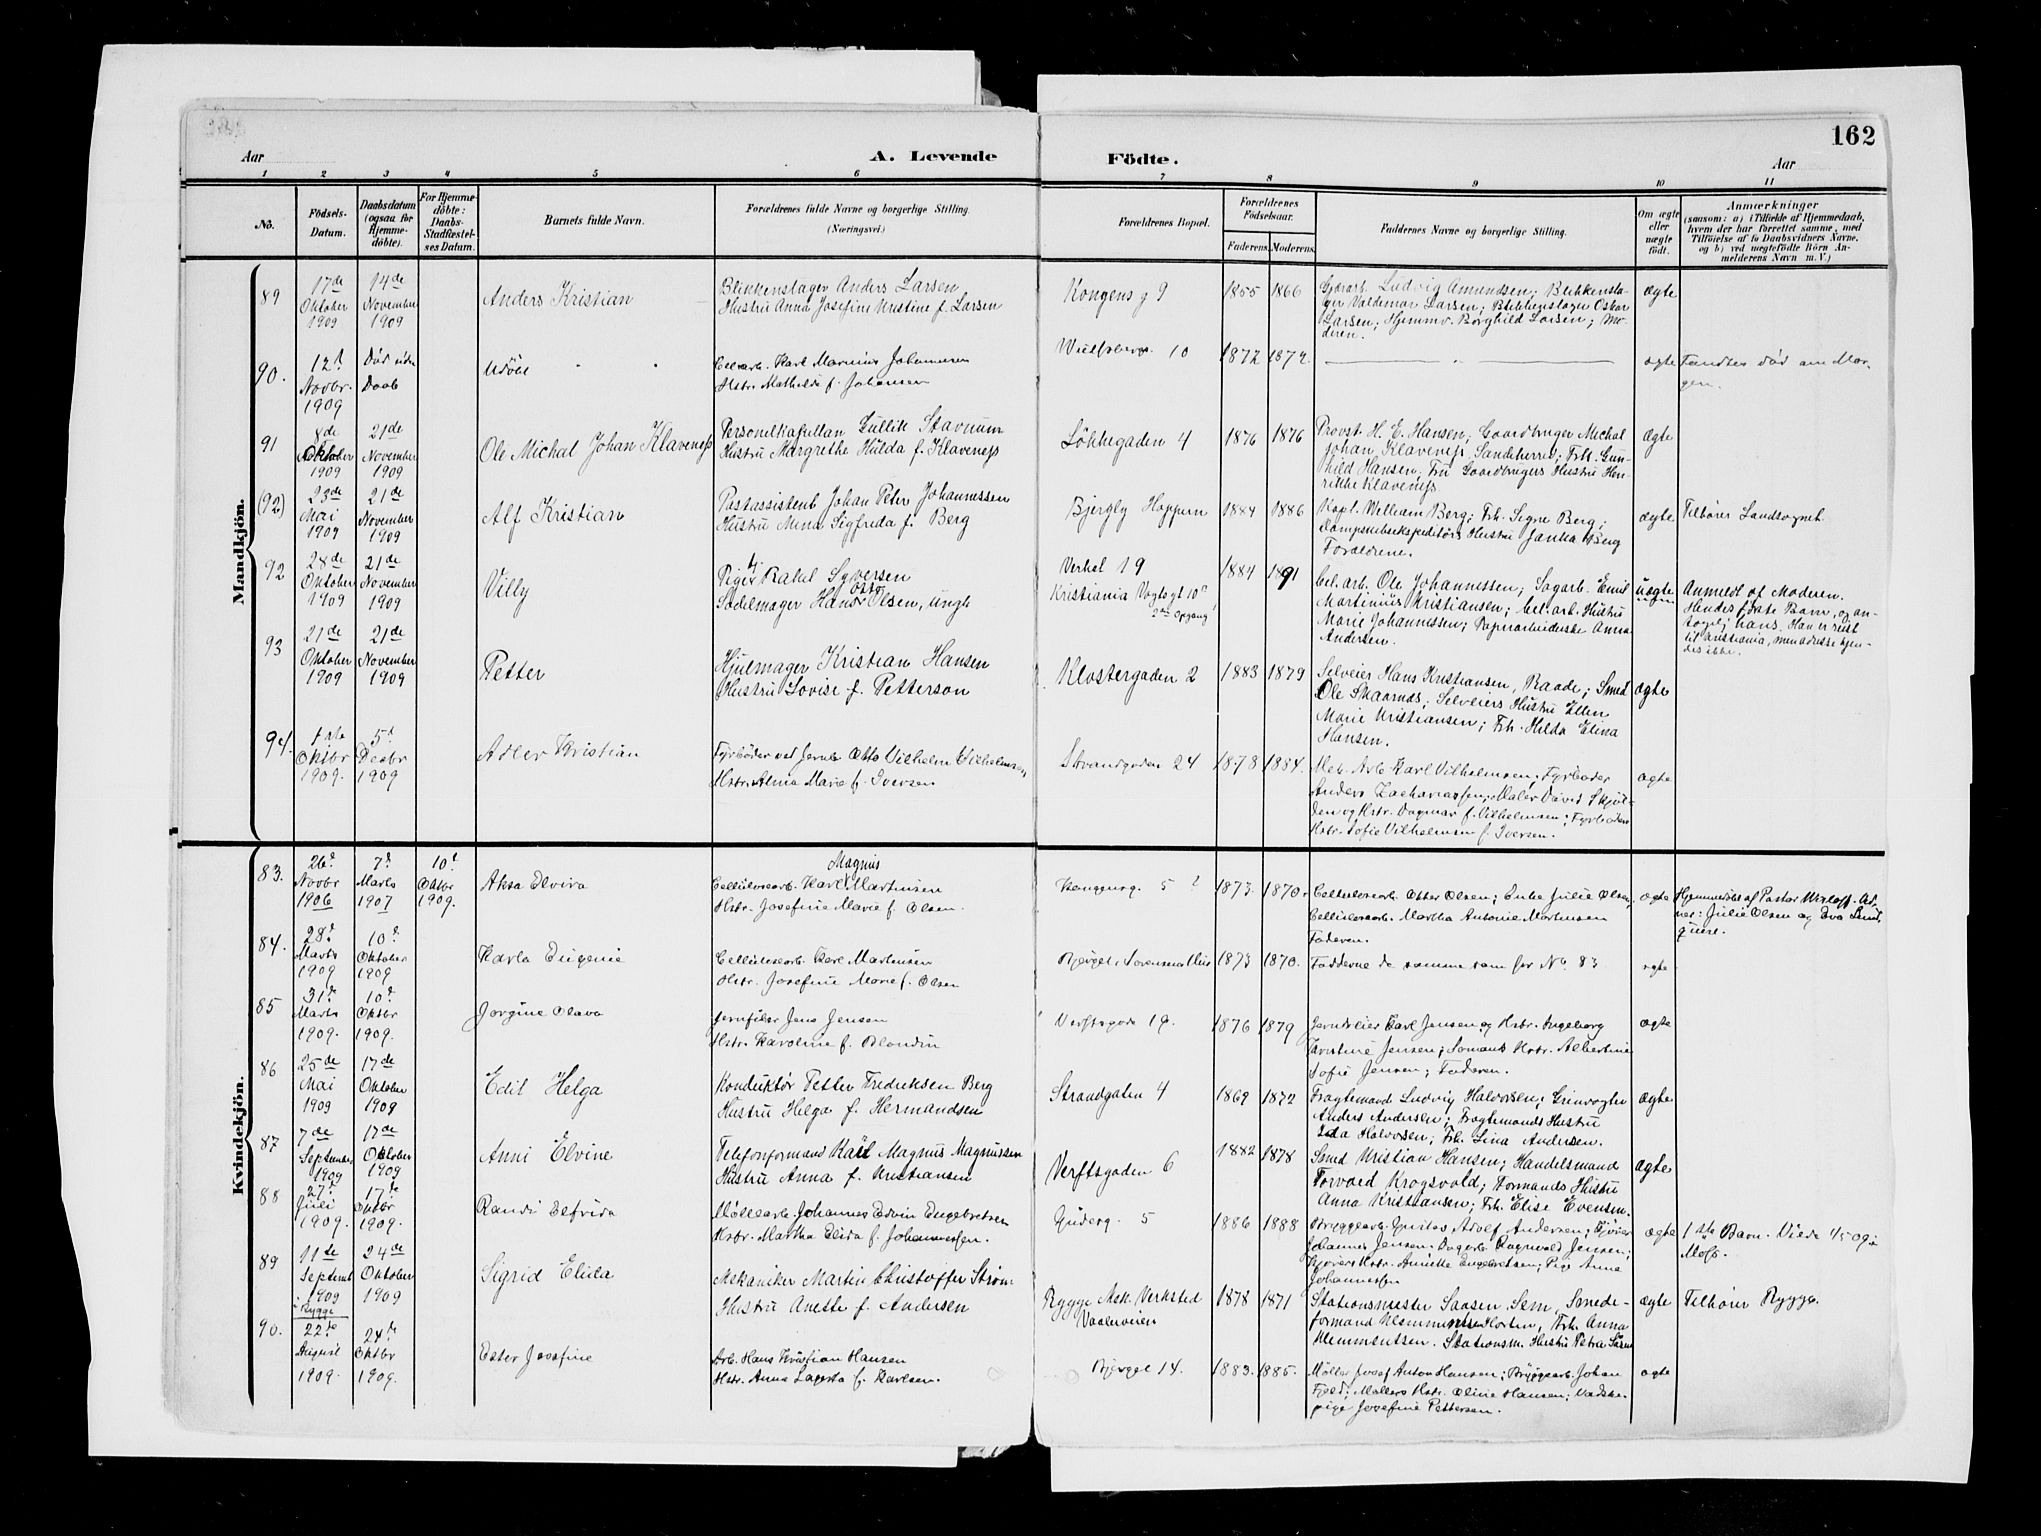 162
Aar
A. Levende
Födte.
Aar
1 2 3 4 5 6 7 8 9 10 11
No.
Födsels-
Datum.
Daabsdatum
(ogsaa for
Hjemme-
döbte).
For Hjemme-
döbte:
Daabs-
Stadfæstel-
ses Datum.
Barnets fulde Navn.
Forældrenes fulde Navne og borgerlige Stilling.
(Næringsvei.)
Forældrenes Bopæl.
Forældrenes
Födselsaar.
Faderens Moderens
Faddernes Navne og borgerlige Stilling.
Om ægte
eller
uægte
födt.
Anmærkninger
(saasom: a) i Tilfælde af Hjemmedaab,
hvem der har forrettet samme, med
Tilföielse af to Daabsvidners Navne,
og b) ved uægtefödte Börn An-
melderens Navn m. V.)
Mandkjön.
89
17de
Oktober
1909
14de
November
1909
Anders Kristian
Blikkenslager Anders Larsen
Hustru Anna Josefine Kristine f. Larsen
Kongens g 9
1855 1866
Ludvig Amundsen; Blikkensla-
ger Valdemar Larsen; Blikkenslager Oskar
Larsen; Hjemmv. Borghild Larsen; Mo-
deren.
ægte
90.
12.
Novbr.
1909
Död uden
Daab
Udöbt
Celarb. Karl Marinius Johannesen
Hstr. Mathilde f. Johansen
10
1872 1872.
ægte
Fandtes död om Mor-
gen.
91
8de
Oktober
1909
21de
November
1909
Ole Michal Johan Klaveness
Personelkapellan Gullik Stavnum
Hustru Margrethe Hulda f. Klaveness
Lökkegaden 4
1876 1876
Provst H. E. Hansen; Gaardbruger Michal
Johan Klaveness, Sandeherred; Frk. Gun-
hild Hansen. Fru Gaardbrugers Hustru Hen-
rikke Klaveness.
Ægte
(92)
23de
Mai
1909
21de
November
1909
Alf Kristian
Postassistent Johan Peter Johannessen
Hustru Mina Sigfreda f. Berg
Bjergly Hoppern
1884 1886
Kapt. William Berg; Frk. Signe Berg;
Dampskibsekspeditörs Hustru Janka Berg
Forældrene.
ægte
Tilhörer Landsognet.
92
28de
Oktober
1909
21de
November
1909
Villy
Pige Rakel Syversen
Sadelmager Hans Otto Olsen, ungk
Verket 19
Kristiania Vogtsgt 10c
2den Opgang
1884 1891
Cel.arb. Ole Johannessen; Sagarb. Emil
Martinius Kristiansen; Cel.arb. Hustru
Marie Johannessen; Papirarbeiderske Anna
Andersen.
uægte
Anmeldt af Moderen.
Hendes förste Barn, og an-
tagelig hans. Han er reist
til Kristiania, men adresse kjen-
des ikke.
93
21de
Oktober
1909
21de
November
1909
Petter
Hjulmager Kristian Hansen
Hustru Lovise f. Petterson
Klostergaden 2
1883 1879
Selveier Hans Kristiansen, Raade; Smed
Ole Skaarnes; Selveiers Hustru Ellen
Marie Kristiansen; Frk. Hilda Elina
Hansen.
Ægte
94.
1ste
Oktbr
1909.
5t
Decbr
1909
Adler Kristian
Fyrböder ved Jernb. Otto Vilhelm Vilhelmsen
Hstr. Alma Marie f. Iversen
Strandgaden 24
1878 1884.
Mek. Arb. Karl Vilhelmsen; Fyrböder
Anders Zachariassen; Maler David Skjöl-
den og Hstr. Dagmar f. Vilhelmsen; Fyrböders
Hstr. Sofie Vilhelmsen f. Iversen.
ægte
Kvindekjön.
83.
26.
Novbr
1906
7.
Marts
1907
10.
Oktbr
1909.
Aksa Elvira
Cellulosearb. Karl Magnus Martinsen
Hstr. Josefine Marie f. Olsen.
5
1873. 1870.
Cellulosearb. Otter Olsen; Enke Julie Olsen,
Cellulosearb. Martha Antonie Martinsen
Faderen.
ægte
Hjemmedöbt af Pastor
: Julie Olsen og Eva
84.
28.
Marts
1909
10.
Oktober
1909
Karla Eugenie
Cellulosearb. Karl Martinsen
Hstr. Josefine Marie f. Olsen
1873 1870.
Fadderne de samme som for No. 83
ægte
85
31.
Marts
1909.
10.
Oktbr
1909.
Jorgine Olava
Jernfiler Jens Jensen
Hstr. Karoline f. Blondin
Verftsgade 19.
1876 1879
Karl Jensen og Hstr. Ingeborg
Kristine Jensen; Sömands Hstr. Albertine
Sofie Jensen; Faderen.
ægte
86
25de
Mai
1909
17de
Oktober
1909
Edit Helga
Konduktör Petter Fredriksen Berg
Hustru Helga f. Hermandsen
Strandgaten 4
1869 1872
Fragtemand Ludvig Halvorsen; Grinvogter
Anders Andersen; Fragtemands Hustru
Ida Halvorsen; Frk. Lina Andersen.
Ægte
87
7de
September
1909
17de
Oktober
1909
Anni Elvine
Telefonformand Karl Magnus Magnussen
Hustru Anna f. Kristiansen
Verftsgaden 6
1882 1878
Smed Kristian Hansen; Handelsmand
Torvard Krogsvold; Formands Hustru
Anna Kristiansen; Frk. Elise Evensen.
Ægte
88
27.
Juli
1909.
17.
Oktbr
1909.
Randi Elfrida
Möllearb. Johannes Edvin Engebretsen
Hstr. Martha Elida f. Johannessen.
Guderg. 5
1886 1888
Bryggearb. Gustav Adolf Andersen;
Johannes Jensen. Ragnvald Jensen;
Hstr. Annette Engebretsen; Pige Anna
Johannessen
ægte
1ste Barn. Viede 4/5 09 i
Moss.
89
11te
Septemb
1909
i Rygge
24de
Oktober
1909
Sigrid Elida
Mekaniker Martin Christoffer Ström.
Hustru Anette f. Andersen
Rygge Mek. Verksted
Vaalerveien
1878 1871
Stationsmester Saasen, Sem, Smede-
formand Klemmentsen Horten, Frk. Anna
Klemmentsen. Stationsm. Hustru Petra Saasen
ægte
Tilhörer Rygge.
90.
22.
August
1909.
24.
Oktbr
1909.
Ester Josefine
Arb. Hans Kristian Hansen
Hstr. Anna Lagerta f. Karlsen.
14.
1883. 1885.
Möller Josef Anton Hansen; Bryggearb. Johan
Fjeld; Möllers Hstr. Oline Hansen;
pige Josefine Pettersen.
ægte